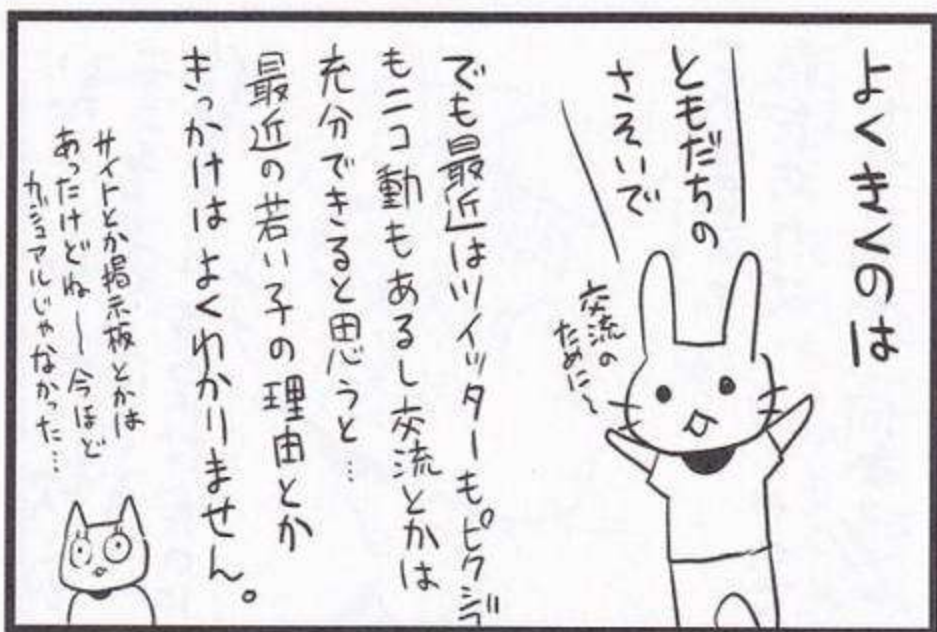 よくきくのは
ともだちの
さそいで
交流の
ために〜
でも最近はツイッターもピクシブ
もニコ動もあるし交流とかは
充分できると思うと…
最近の若い子の理由とか
きっかけはよくわかりません。
サイトとか掲示板とかは
あったけどね〜今ほど
カジュアルじゃなかった…